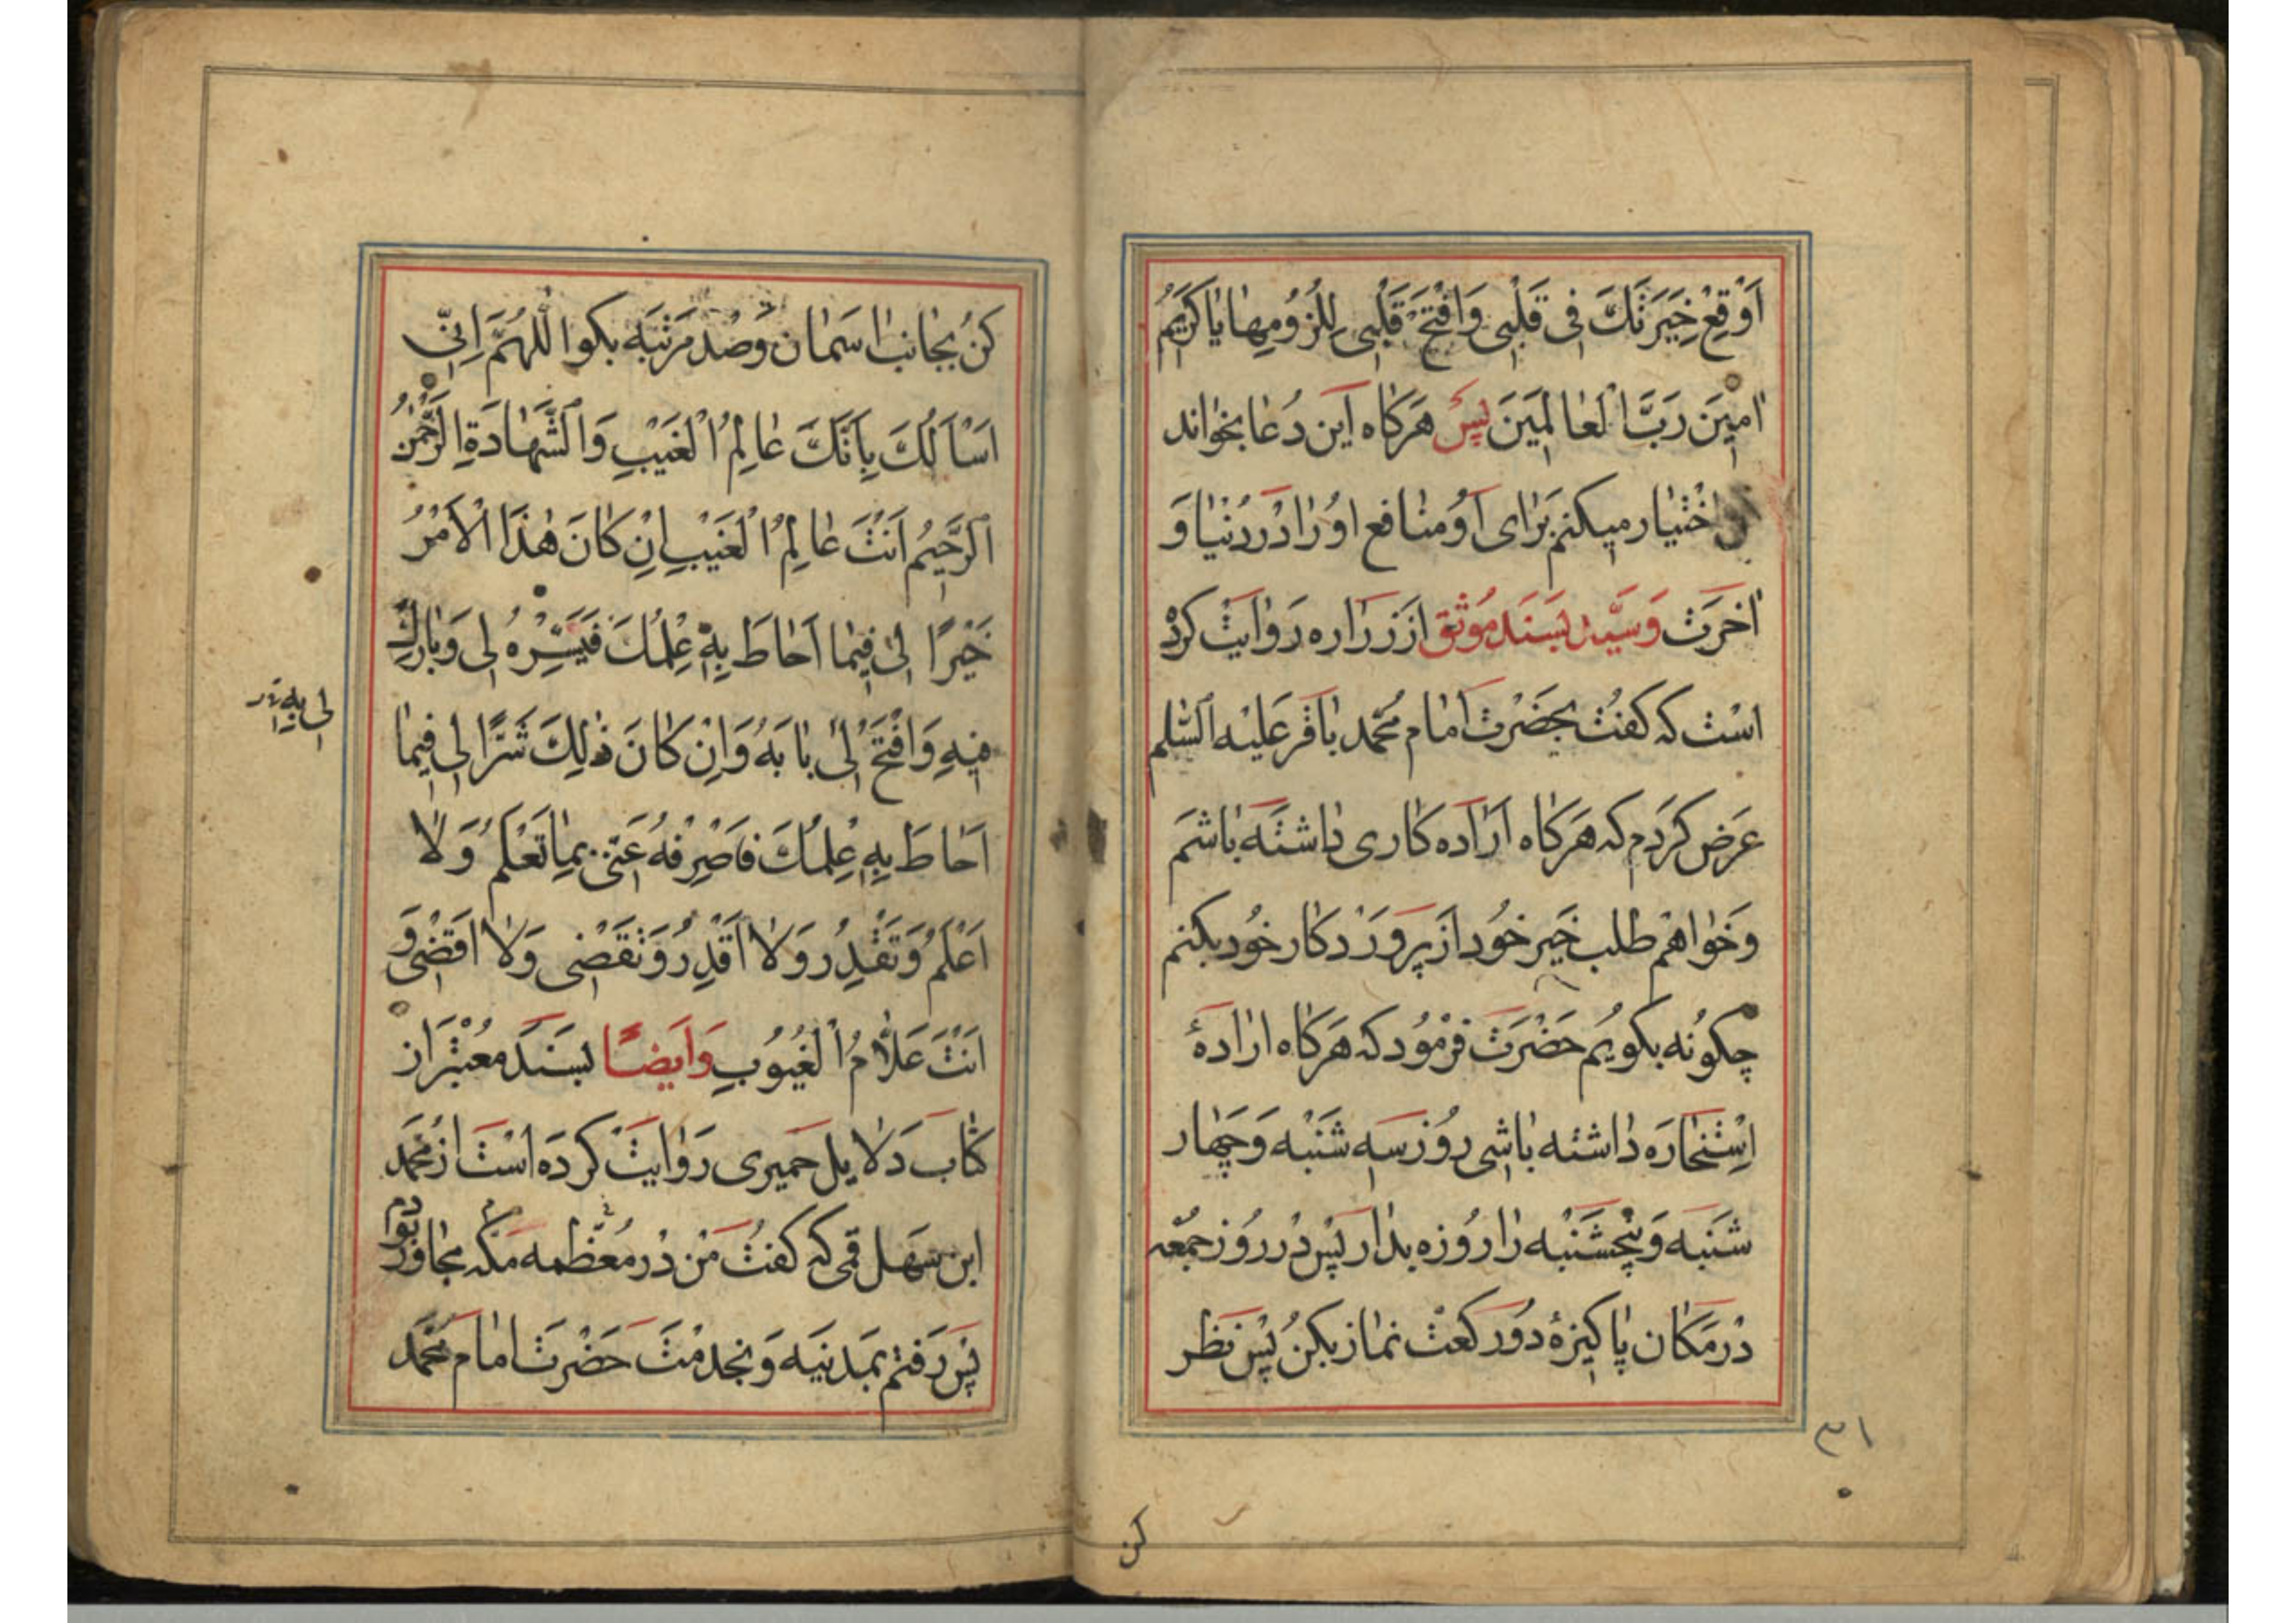 اَوْقِعْ خِيَرَتَكَ فى قَلْبى وَافْتَحْ قَلْبى لِلُزُومِها يا كَريمُ
امينَ رَبَّ الْعالَمينَ پس هَركاه اين دُعا بخواند
اختيار ميكنم بَراى او و منافع او را در دُنيا وَ
اخرَت وَسَيّد بسَنَد مُوثق از زراره رَوايَت كرده
است كه كفت بحضرت امام محمّد باقر عليه السّلم
عَرض كرَدم كه هَركاه اراده كارى داشته باشم
وَخواهم طلب خَير خُود از پروَردكار خُود بكنم
چكونه بكويم حَضرَت فرمُود كه هَركاه ارادهٔ
اِستخارَه داشته باشى روز سه شَنبه وَ چهار
شَنبه وَ پنچشَنبه را روزه بدار پس در روز جمعه
در مَكان پاكيزهٔ دو ركعت نماز بكن پس نظر
٣١
كن
كن بجانب اسَمان وَ صد مَرتبَه بكو اللّهُمَّ اِنّى
اَسْاَلُكَ بِاَنَّكَ عالِمُ الْغَيْبِ وَالشَّهادَةِ الرَّحْمنُ
الرَّحيمُ اَنْتَ عالِمُ الْغَيْبِ اِنْ كانَ هذَا الْاَمْرُ
خَيْرًا لى فيما اَحاطَ بِهِ عِلْمُكَ فَيَسِّرْهُ لى وَبارِكْ
لى به
فيهِ وَافْتَحْ لى بابَهُ وَاِنْ كانَ ذلِكَ شَرًّا لى فيما
اَحاطَ بِهِ عِلْمُكَ فَاصْرِفْهُ عَنّى بِما تَعْلَمُ وَلا
اَعْلَمُ وَتَقْدِرُ وَلا اَقْدِرُ وَتَقْضى وَلا اَقْضى وَ
اَنْتَ عَلّامُ الْغُيُوبِ وَايضًا بسَنَد معُتبَر از
كتاب دَلايل حميرى رَوايت كردَه است از محمّد
ابن سَهل قمى كه كفت من در معُظّمه مَكّه مجاور بودم
پس رَفتم بمَدنيَه وَ بخدمت حَضرَت امام محمّد